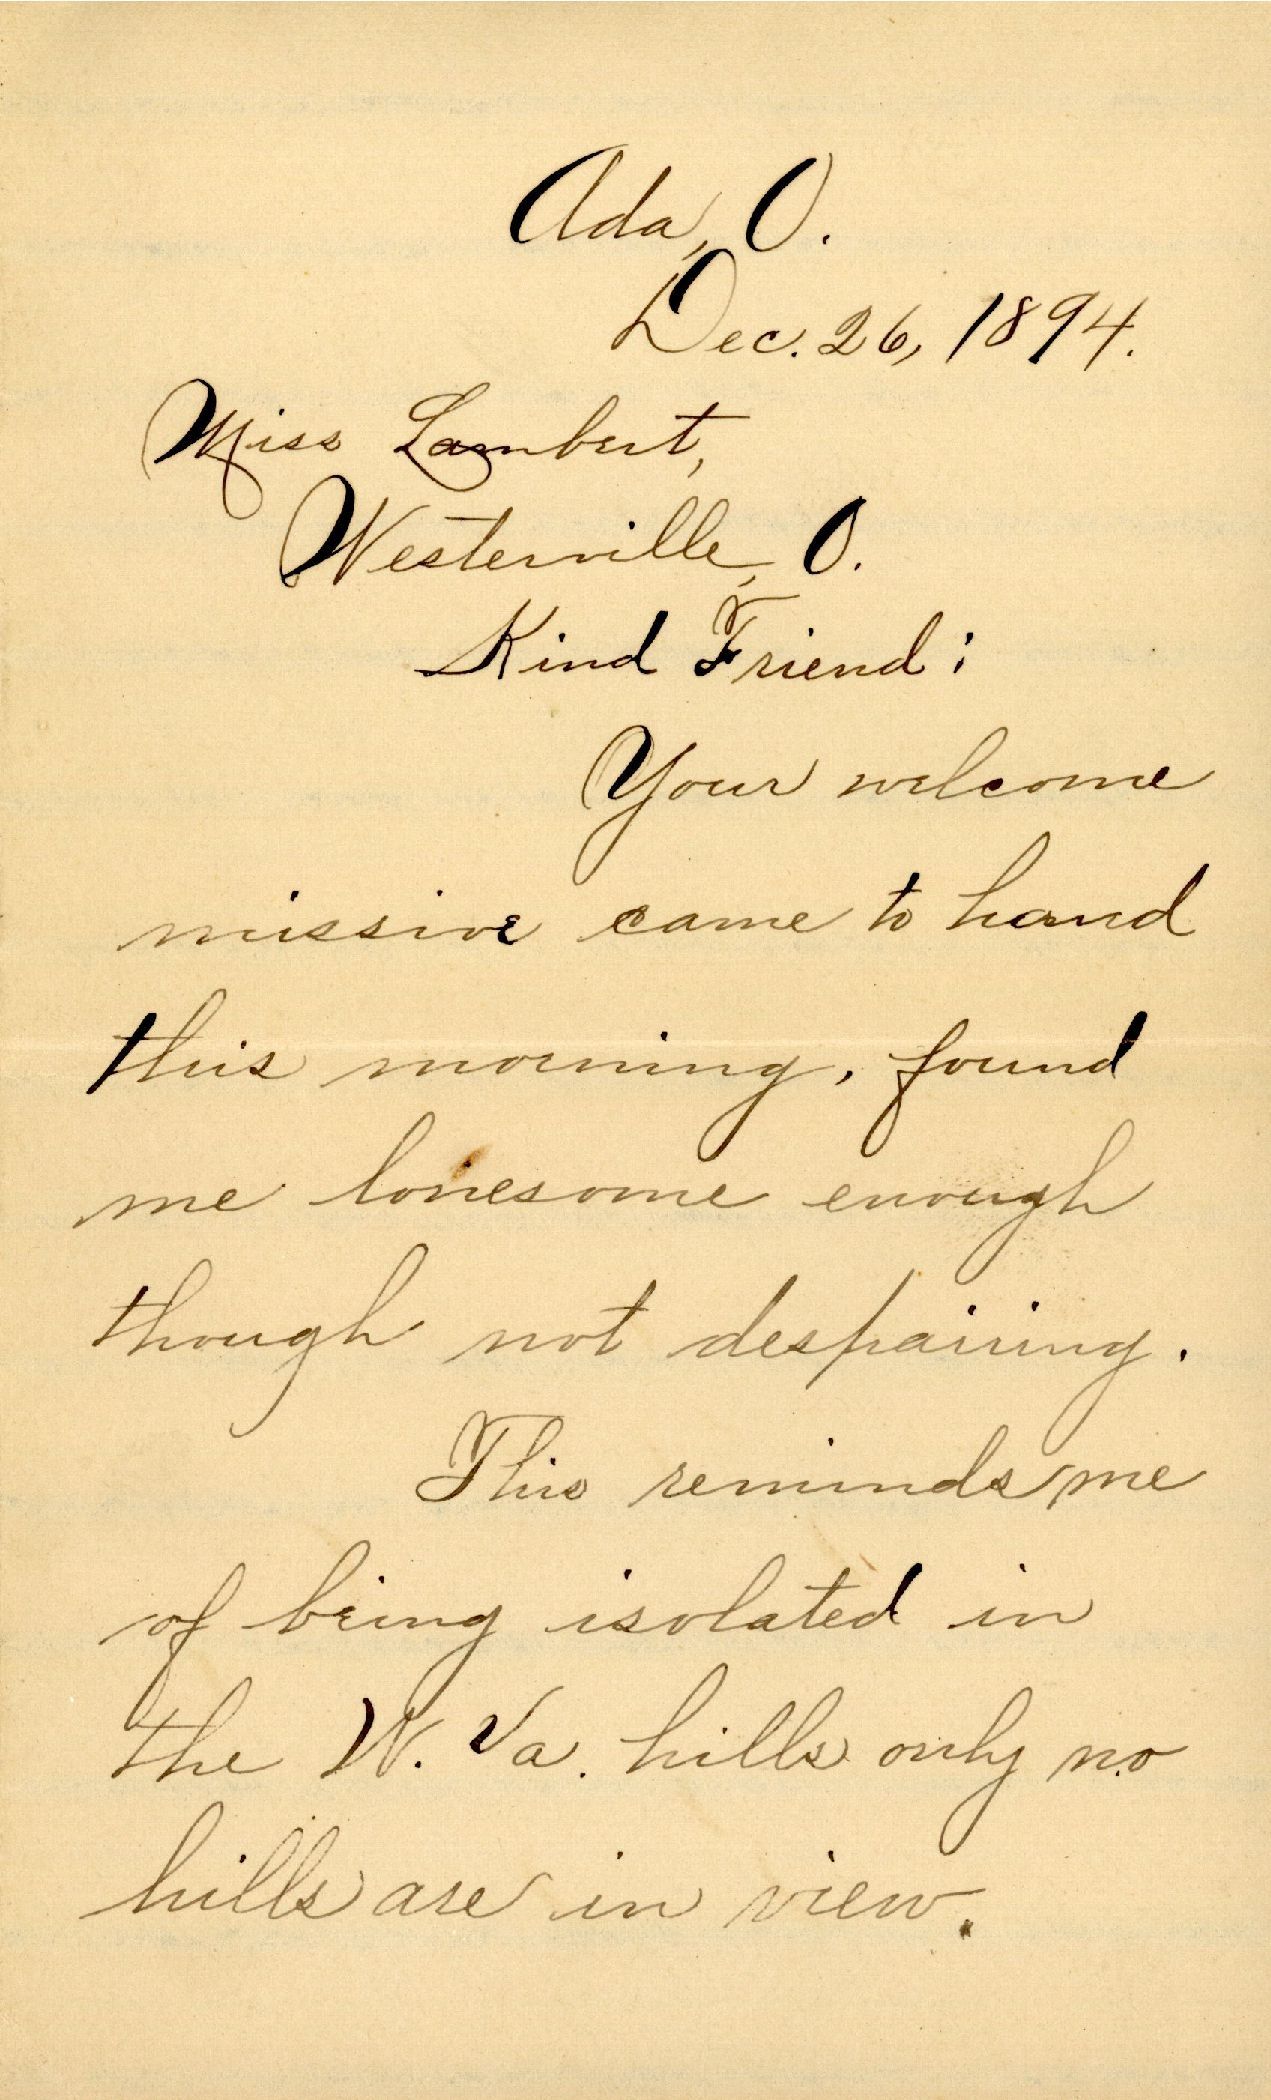 Ada, O.
Dec. 26, 1894.
Miss Lambert,
Westerville, O.
Kind Friend:
Your welcome
missive came to hand
this morning, found
me lonesome enough
though not despairing.
This reminds me
of being isolated in
the W. Va. hills only no
hills are in view.